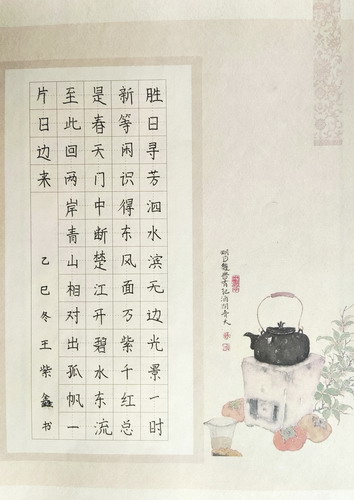 胜日寻芳泗水滨无边光景一时
新等闲识得东风面万紫千红总
是春天门中断楚江开碧水东流
至此回两岸青山相对出孤帆一
片日边来
乙巳冬王紫鑫书
明月幾時有把酒問青天